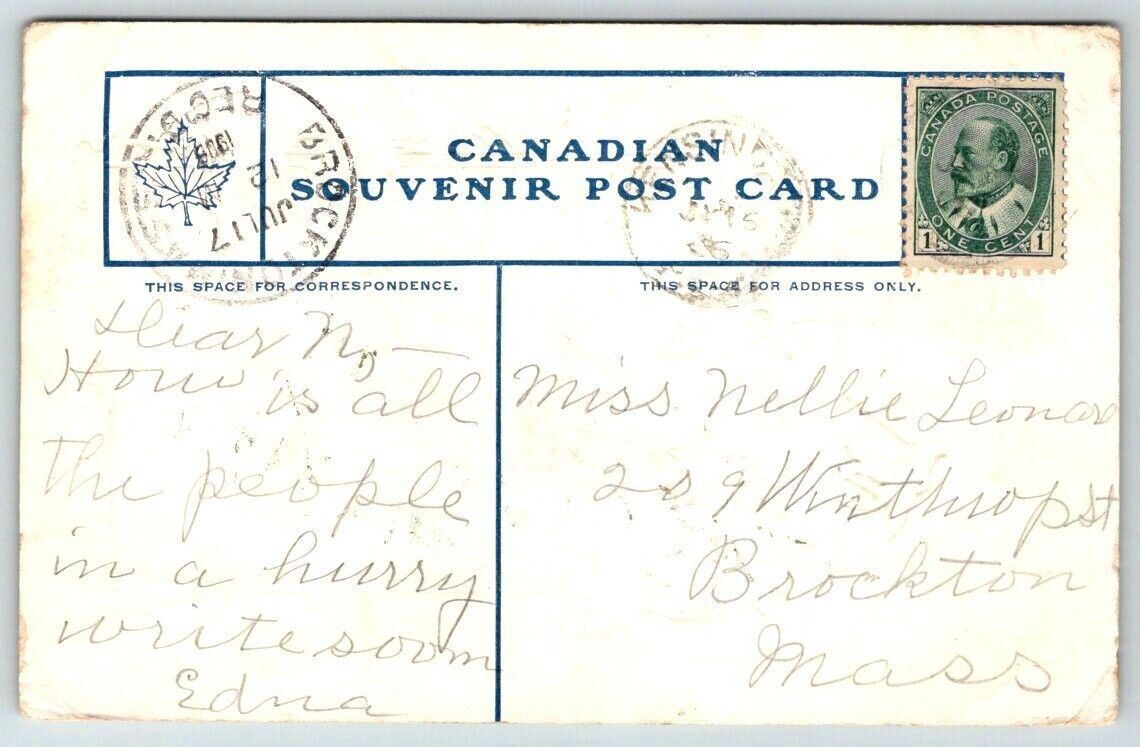 CANADIAN
SOUVENIR POST CARD
CANADA POSTAGE
1 ONE CENT 1
BROCKTON
MASS.
REC'D
12
JUL 17
THIS SPACE FOR CORRESPONDENCE.
THIS SPACE FOR ADDRESS ONLY.
Dear N,
How is all
the people
in a hurry
write soom
Edna
Miss Nellie Leonard
209 Winthrop st
Brockton
Mass